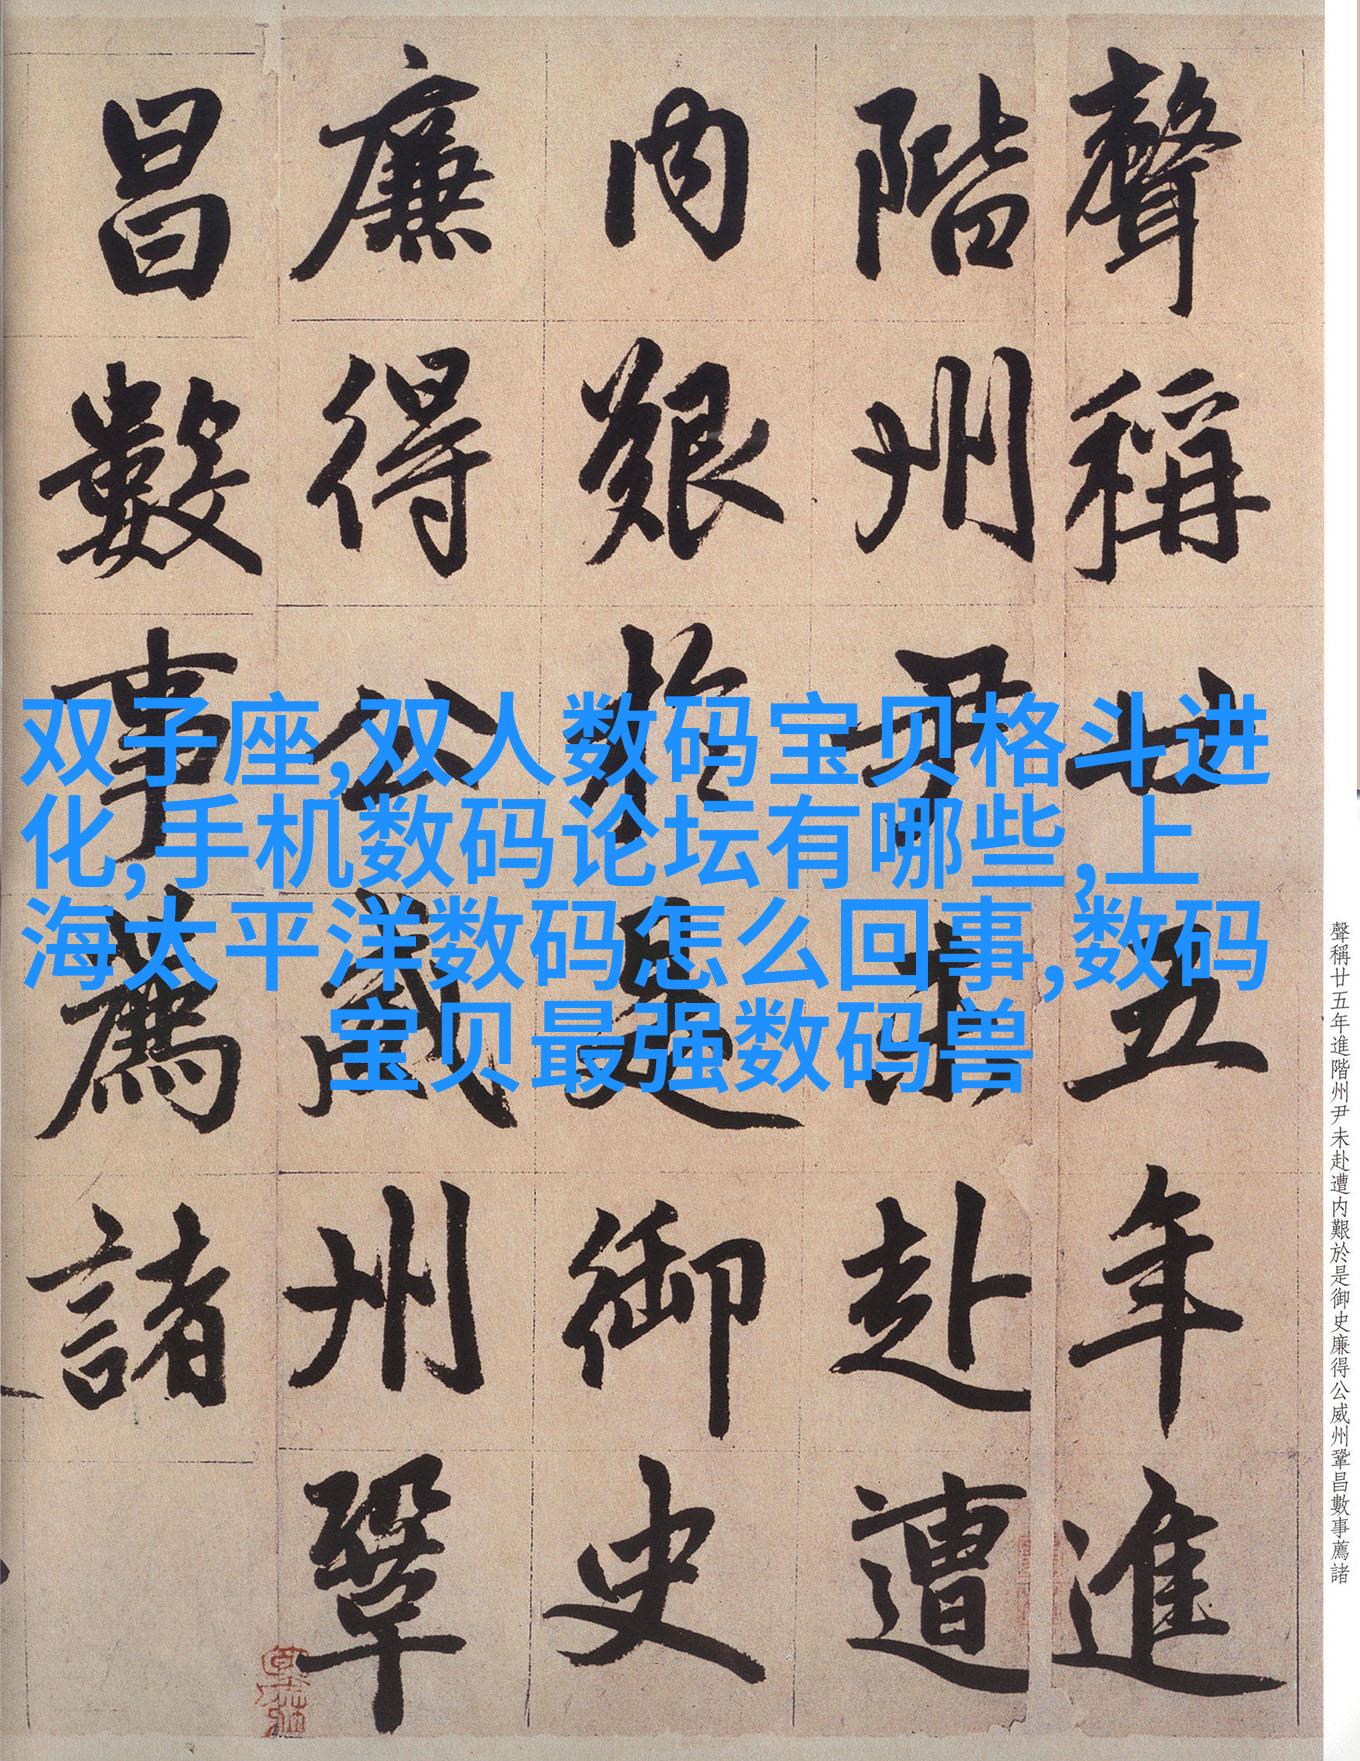 聲稱廿五年進
階州尹未赴遭
内艱於是御史
廉得公威州鞏
昌數事薦諸
双子座,双人数码宝贝格斗进
化,手机数码论坛有哪些,上
海太平洋数码怎么回事,数码
宝贝最强数码兽
聲稱廿五年進階州尹未赴遭内艱於是御史廉得公威州鞏昌數事薦諸